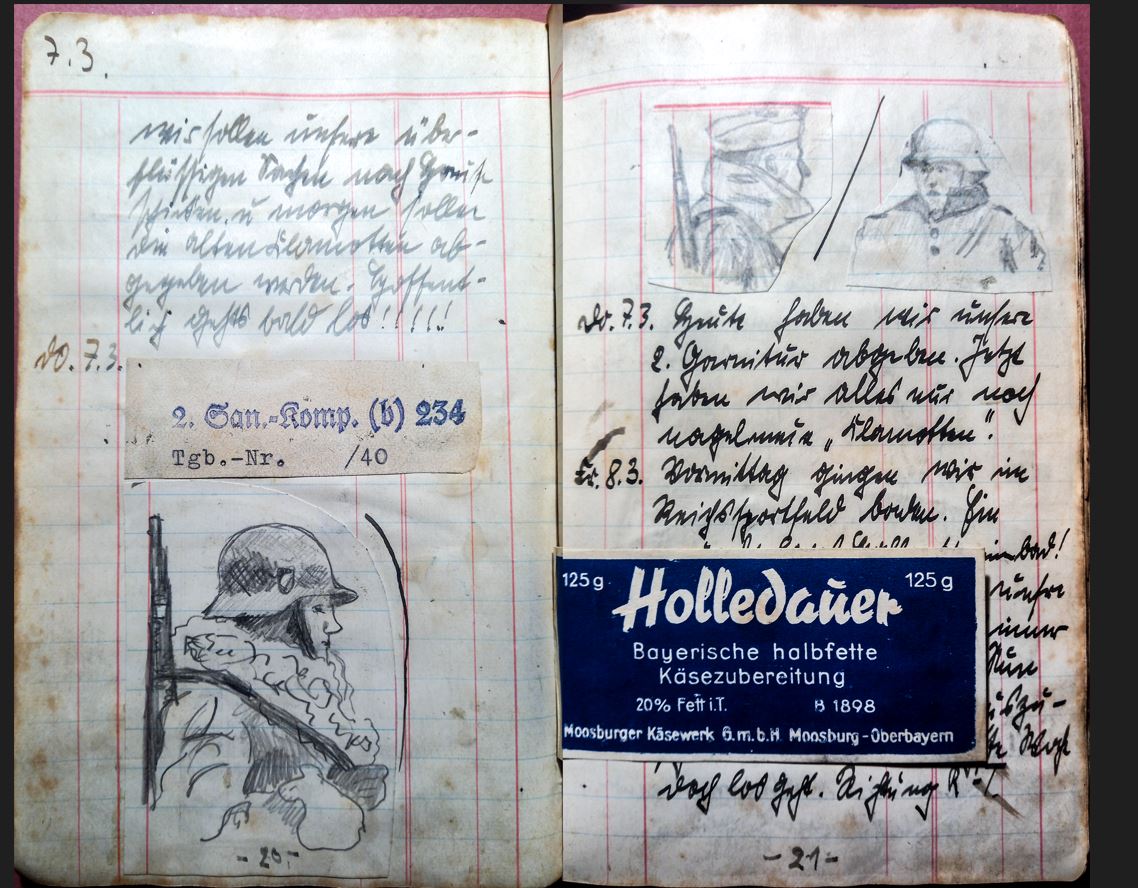 7.3.
wir sollen unsere über-
flüssigen Sachen nach Hause
schicken u morgen sollen
die alten Klamotten ab-
gegeben werden. Hoffent-
lich gehts bald los!!!!!
Do. 7.3.
2. San.-Komp. (b) 234
Tgb.-Nr. /40
- 20 -
Do. 7.3. Heute haben wir unsere
2. Garnitur abgeben. Jetzt
haben wir alles nur noch
nagelneue „Klamotten“.
Fr. 8.3. Vormittag gingen wir im
Reichssportfeld baden. Ein
bad!
unsre
immer
Nun
125 g Holledauer 125 g
Bayerische halbfette
Käsezubereitung
20% Fett i.T. B 1898
Moosburger Käsewerk G.m.b.H Moosburg-Oberbayern
doch los geht. Richtung
- 21 -